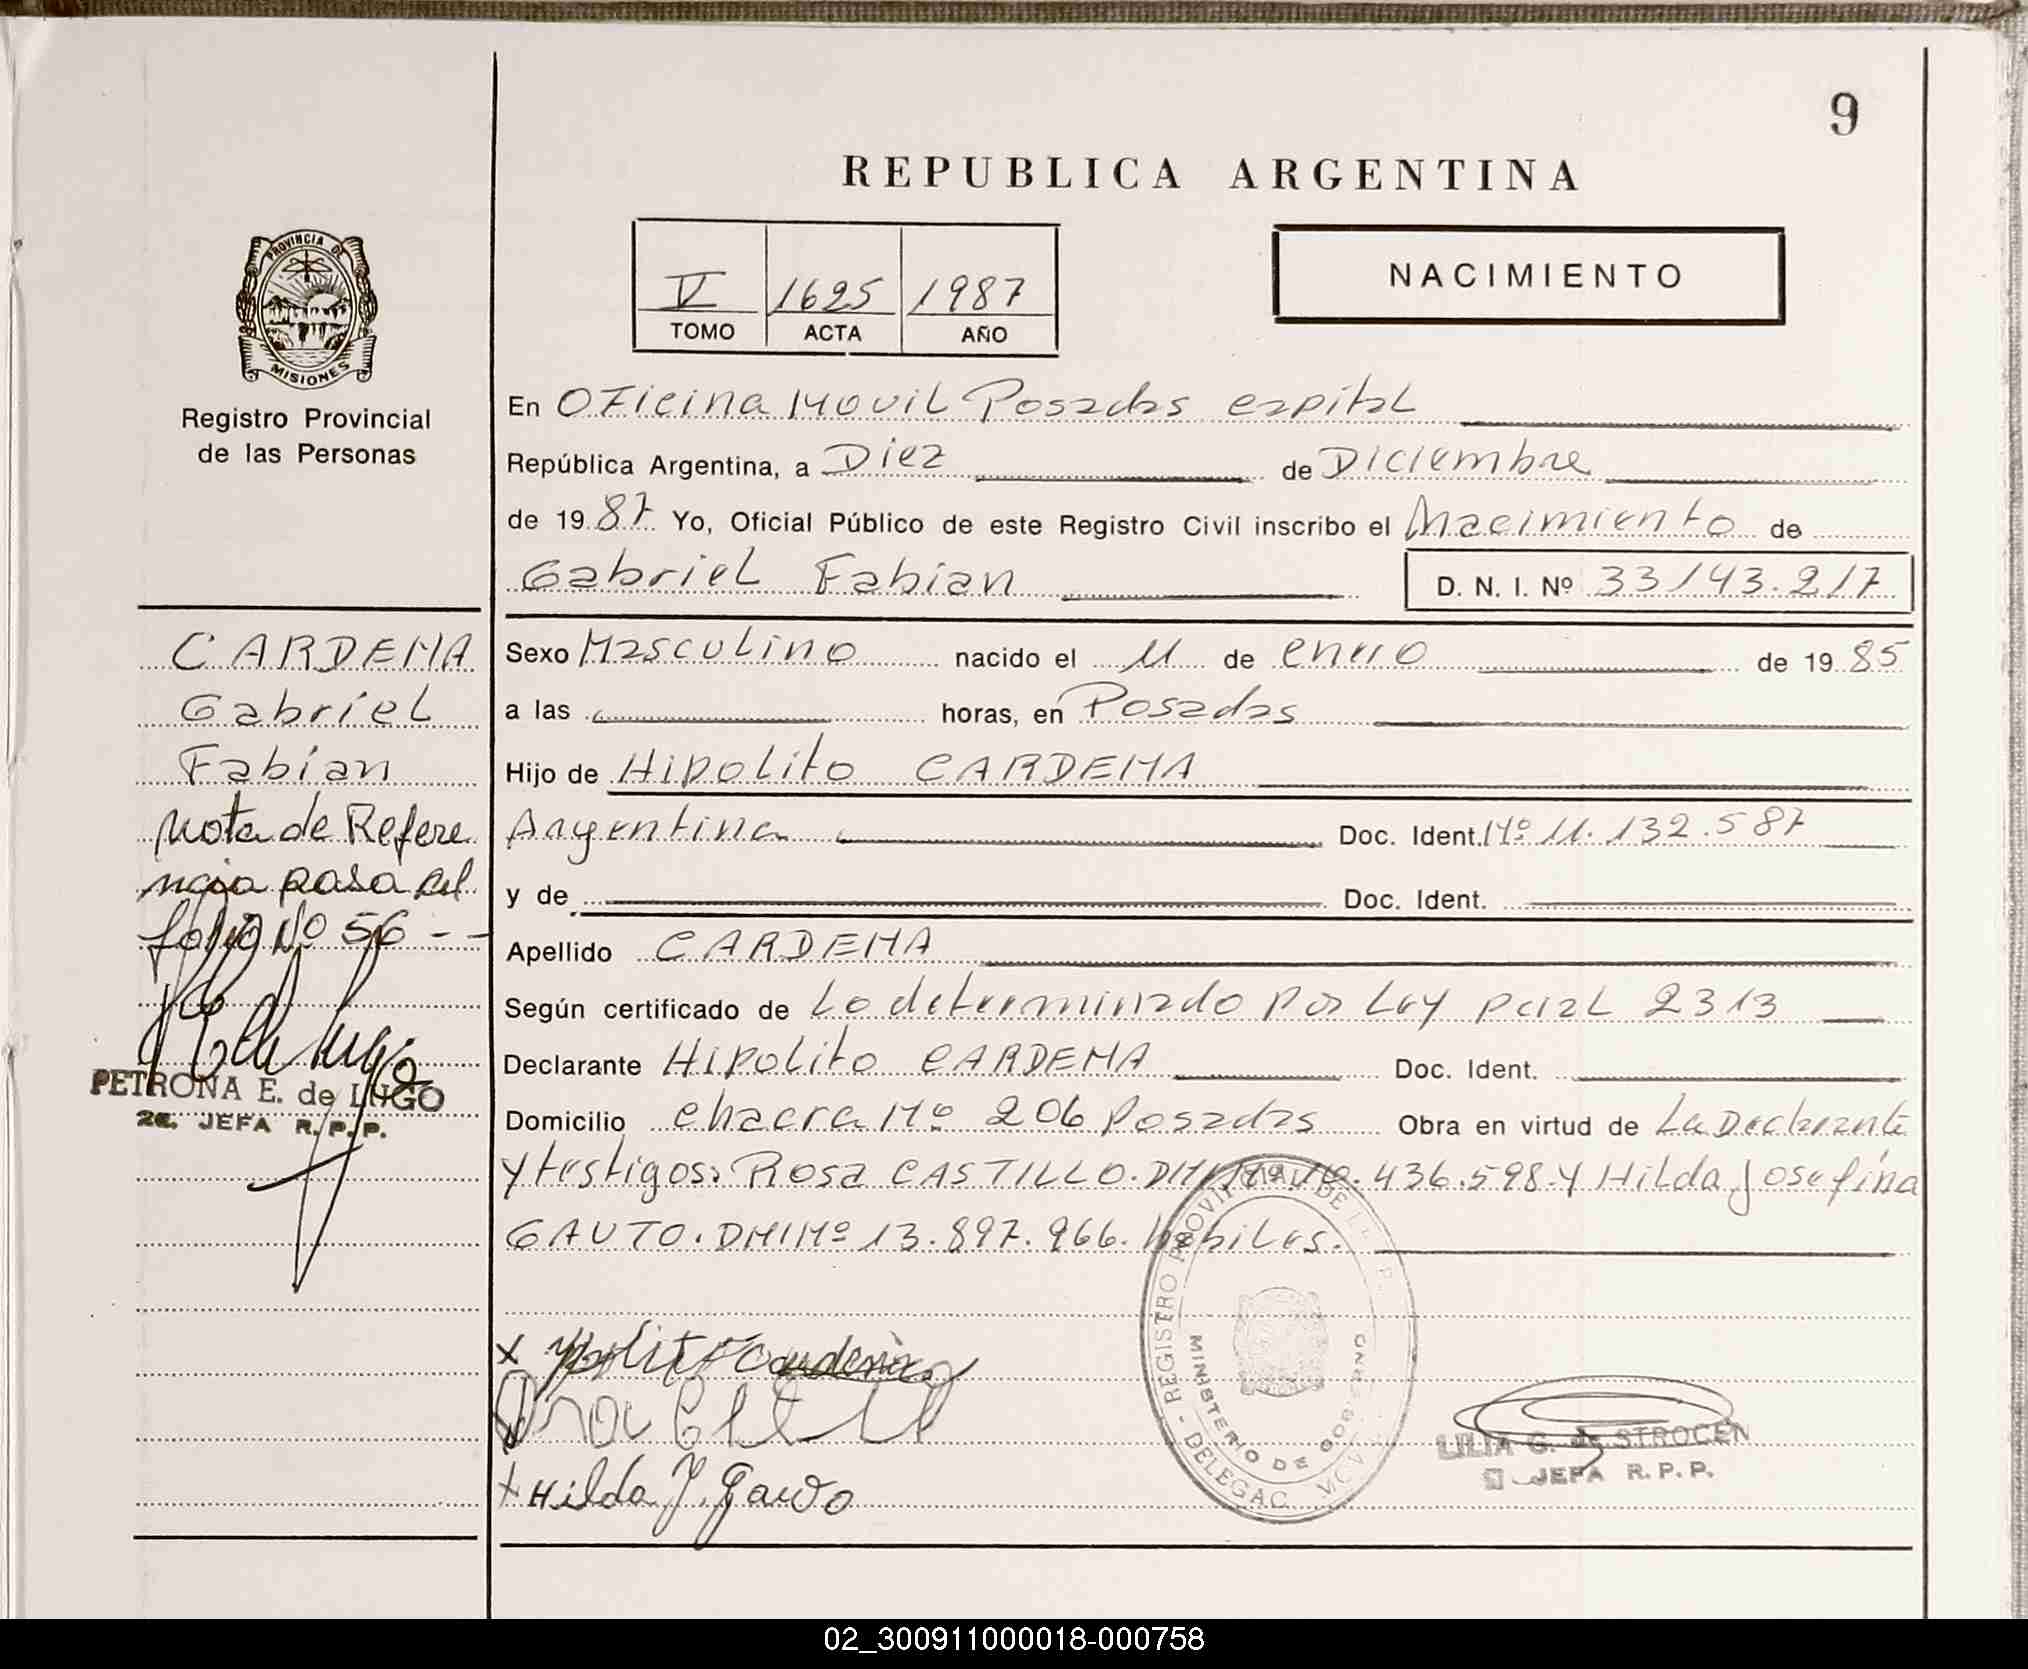 9
REPUBLICA ARGENTINA
PROVINCIA DE
MISIONES
Registro Provincial
de las Personas
V 1625 1987
TOMO ACTA AÑO
NACIMIENTO
En Oficina Movil Posadas capital
República Argentina, a Diez de Diciembre
de 1987 Yo, Oficial Público de este Registro Civil inscribo el Nacimiento de
Gabriel Fabian D. N. I. Nº 33143.217
CARDEMA
Gabriel
Fabian
Nota de Refere
ncia pasa al
folio Nº 56 - -
PETRONA E. de LUGO
2a. JEFA R. P. P.
Sexo Masculino nacido el 11 de enero de 1985
a las horas, en Posadas
Hijo de Hipolito CARDEMA
Argentina Doc. Ident. Nº 11.132.587
y de Doc. Ident.
Apellido CARDEMA
Según certificado de Lo determinado por Ley pcial 2313
Declarante Hipolito CARDEMA Doc. Ident.
Domicilio chacra Nº 206 Posadas Obra en virtud de La Declarante
y testigos: Rosa CASTILLO. DNI Nº .436.598. y Hilda Josefina
GAUTO. DNI Nº 13.897.966. habiles.
x Ypolito Cardema
x Hilda J. Gauto
REGISTRO PROVINCIAL DE
MINISTERIO DE GOBIERNO
DELEGAC
LILIA G. de STROCEN
JEFA R. P. P.
02_300911000018-000758